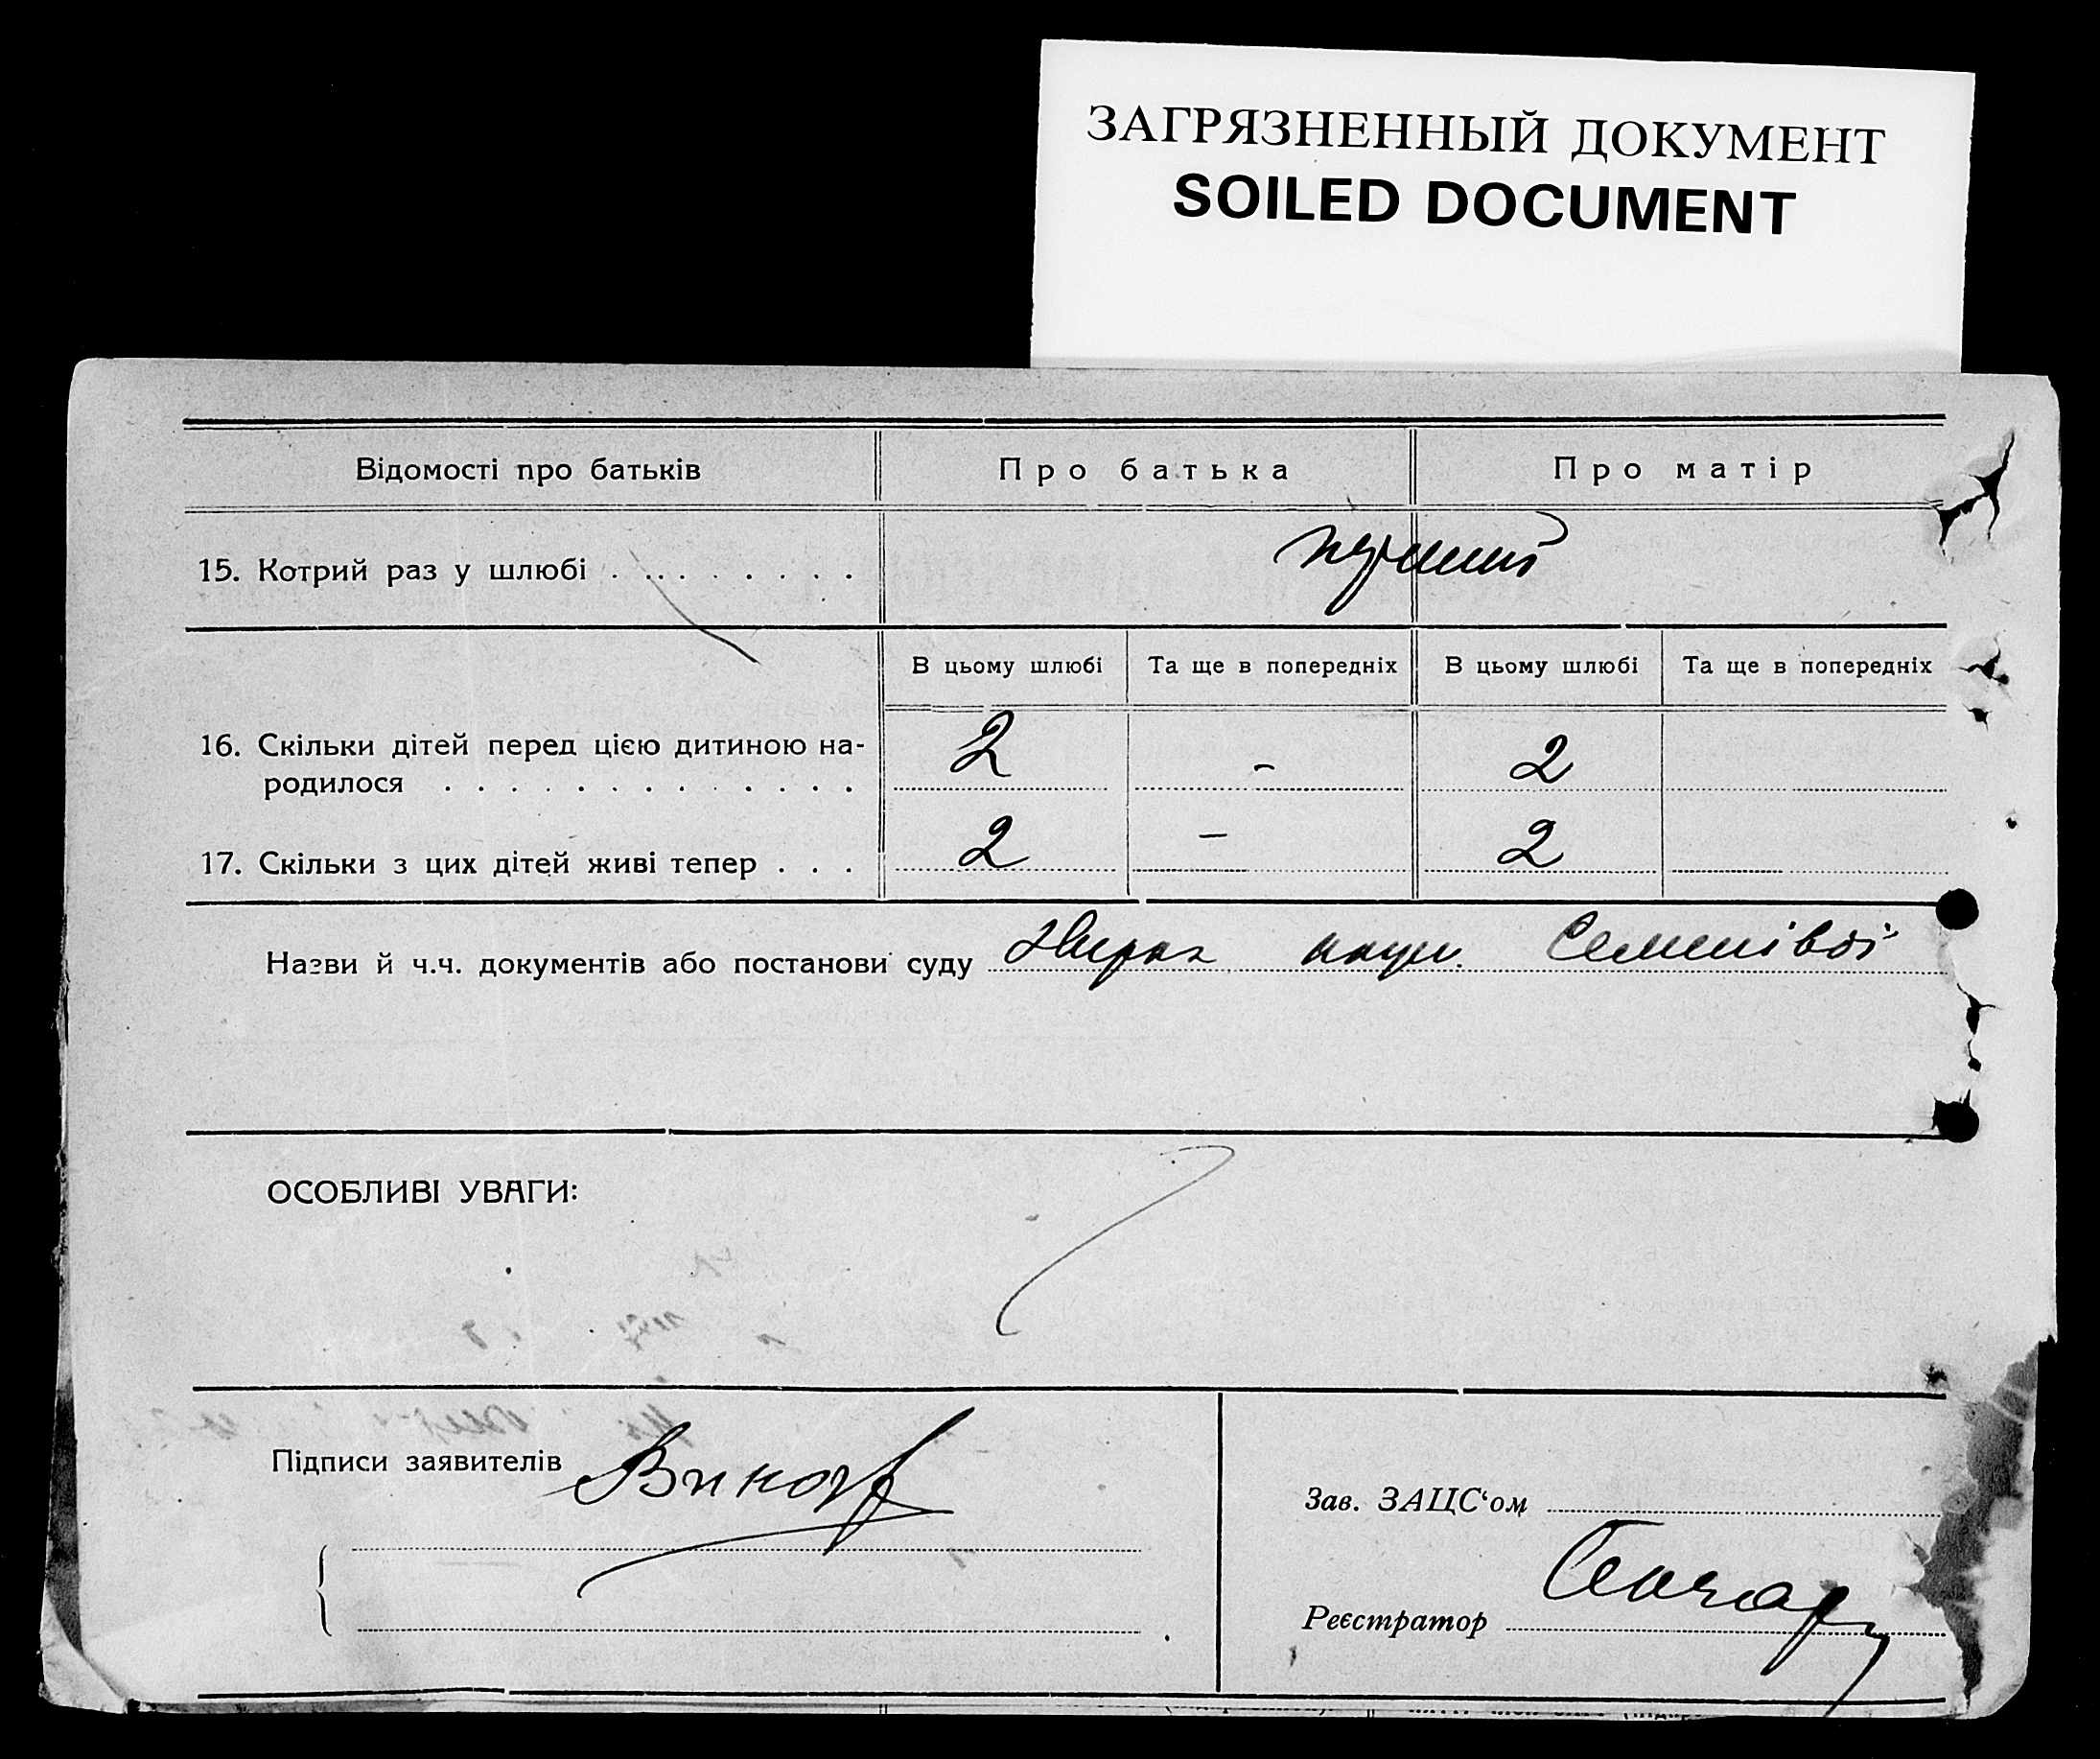 ЗАГРЯЗНЕННЫЙ ДОКУМЕНТ
SOILED DOCUMENT
Відомості про батьків Про батька Про матір
15. Котрий раз у шлюбі . . . . . . . . перший
В цьому шлюбі Та ще в попередніх В цьому шлюбі Та ще в попередніх
16. Скільки дітей перед цією дитиною на-
родилося . . . . . . . . . . . . . 2 - 2
17. Скільки з цих дітей живі тепер . . . 2 - 2
Назви й ч.ч. документів або постанови суду
ОСОБЛИВІ УВАГИ:
Підписи заявителів
Зав. ЗАЦС‘ом
Реєстратор